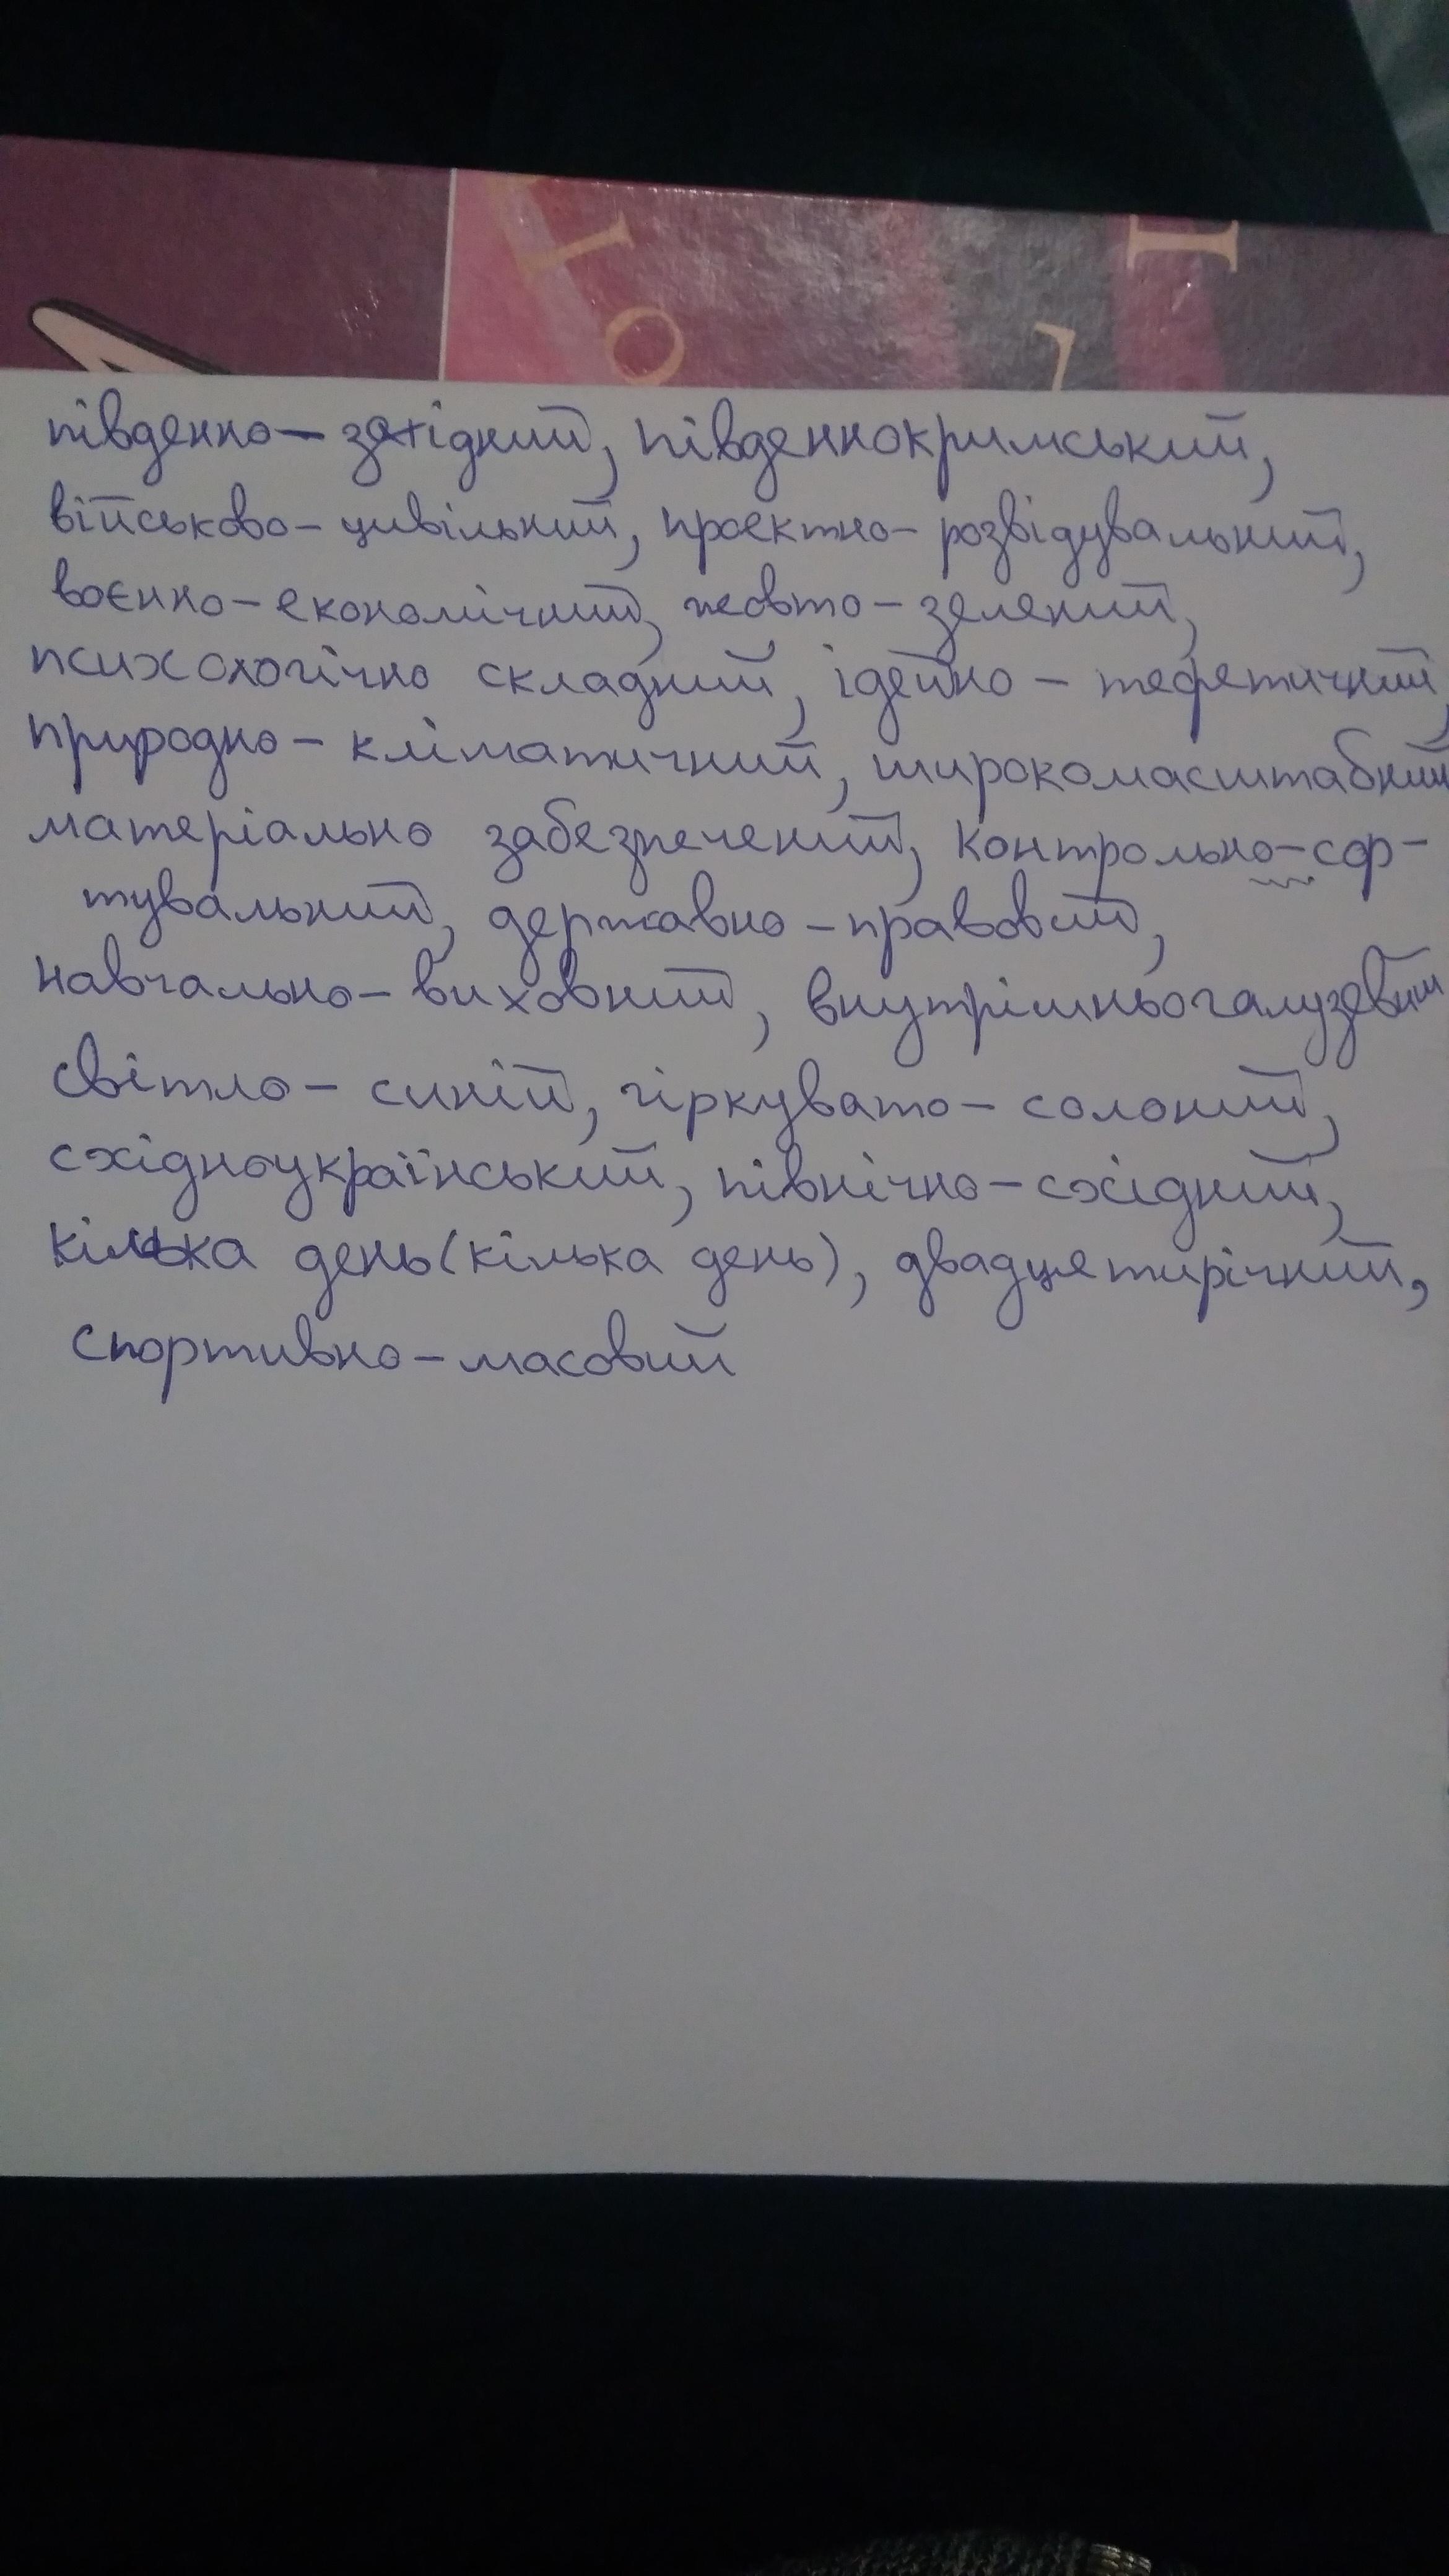 південно-західний, південнокримський,
військово-цивільний, проектно-розвідувальний,
воєнно-економічний, жовто-зелений,
психологічно складний, ідейно-теоретичний,
природно-кліматичний, широкомасштабний
матеріально забезпечений, контрольно-сор-
тувальний, державно-правовий,
навчально-виховний, внутрішньогалузевий
світло-синій, гіркувато-солоний,
східноукраїнський, північно-східний,
кілька день (кілька день), двадцятирічний,
спортивно-масовий